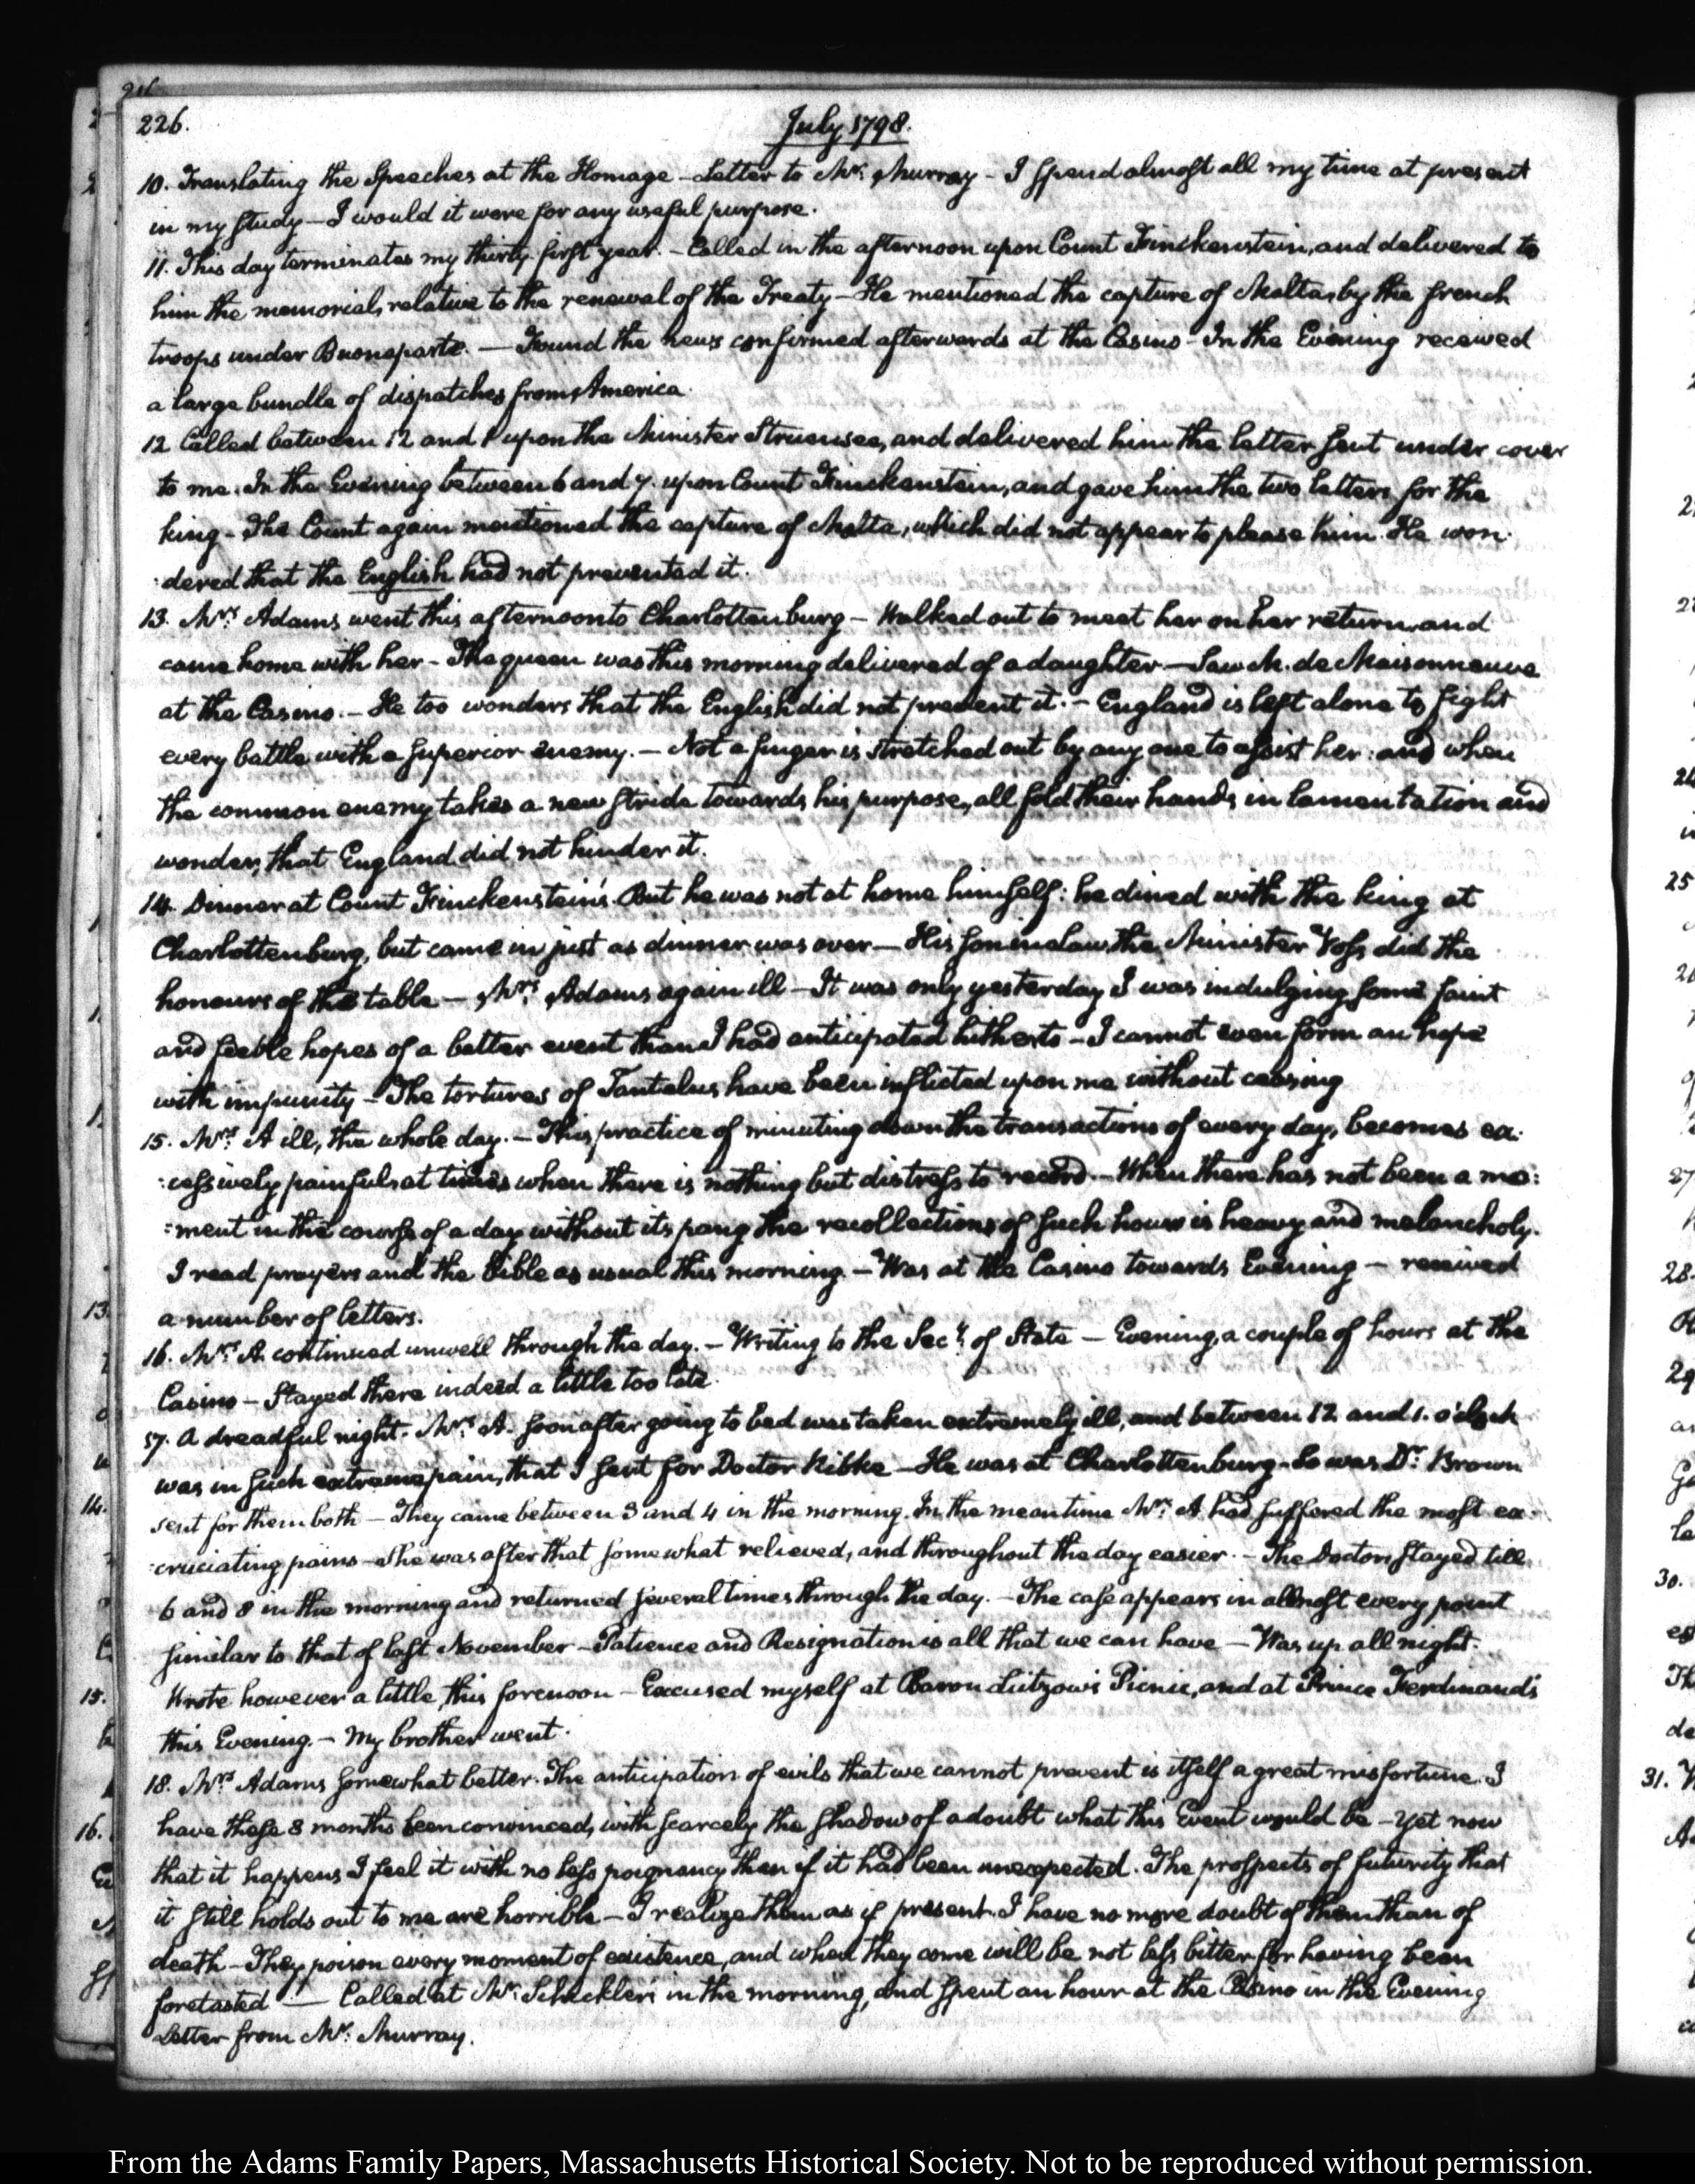 226.
July 1798.
10. Translating the Speeches at the Homage – Letter to Mr: Murray – I spend almost all my time at present
in my study – I would it were for any useful purpose.
11. This day terminates my thirty-first year. – Called in the afternoon upon Count Finckenstein, and delivered to
him the memorial, relative to the renewal of the Treaty – He mentioned the capture of Malta, by the french
troops under Buonaparte. – Found the news confirmed afterwards at the Casino – In the Evening received
a large bundle of dispatches from America.
12. Called between 12 and 1 upon the Minister Struensee, and delivered him the letter sent under cover
to me. In the Evening between 6 and 7. upon Count Finckenstein, and gave him the two letters for the
king – The Count again mentioned the capture of Malta, which did not appear to please him. He won:
:dered that the English had not prevented it.
13. Mrs: Adams went this afternoon to Charlottenburg – Walked out to meet her on her return, and
came home with her – The queen was this morning delivered of a daughter – Saw M. de Maisonneuve
at the Casino. – He too wonders that the English did not prevent it. – England is left alone to fight
every battle with a superior enemy. – Not a finger is stretched out by any one to assist her: and when
the common enemy takes a new stride towards his purpose, all fold their hands in lamentation and
wonder, that England did not hinder it.
14. Dinner at Count Finckenstein's. But he was not at home himself: he dined with the king at
Charlottenburg, but came in just as dinner was over – His son in law the Minister Voss did the
honours of the table – Mrs: Adams again ill – It was only yesterday I was indulging some faint
and feeble hopes of a better event than I had anticipated hitherto – I cannot even form an hope
with impunity – The tortures of Tantalus have been inflicted upon me without ceasing
15. Mrs: A ill, the whole day. – This practice of minuting down the transactions of every day, becomes ex:
:cessively painful, at times when there is nothing but distress to record. – When there has not been a mo:
:ment in the course of a day without its pang the recollection of such hours is heavy and melancholy.
I read prayers and the Bible as usual this morning. – Was at the Casino towards Evening – received
a number of letters.
16. Mrs: A. continued unwell through the day. – Writing to the Secy: of State – Evening, a couple of hours at the
Casino – Stayed there indeed a little too late.
17. A dreadful night. Mrs: A. soon after going to bed was taken extremely ill, and between 12 and 1. o'clock
was in such extreme pain, that I sent for Doctor Ribke – He was at Charlottenburg – So was Dr: Brown
sent for them both – They came between 3 and 4 in the morning. In the mean time Mrs: A. had suffered the most ex:
:cruciating pains – She was after that somewhat relieved, and throughout the day easier. – The Doctors stayed till
6 and 8 in the morning and returned several times through the day. – The case appears in allmost every point
similar to that of last November – Patience and Resignation is all that we can have – Was up all night.
Wrote however a little, this forenoon – Excused myself at Baron Lützow's Picnic, and at Prince Ferdinand's
this Evening. – My brother went.
18. Mrs: Adams somewhat better. The anticipation of evils that we cannot prevent is itself a great misfortune. I
have these 8 months been convinced, with scarcely the shadow of a doubt what this Event would be – yet now
that it happens I feel it with no less poignancy than if it had been unexpected. The prospects of futurity that
it still holds out to me are horrible – I realize them as if present. I have no more doubt of them than of
death – They poison every moment of existence, and when they come will be not less bitter for having been
foretasted – Called at Mr: Schickler's in the morning, and spent an hour at the Casino in the Evening
Letter from Mr: Murray.
From the Adams Family Papers, Massachusetts Historical Society. Not to be reproduced without permission.